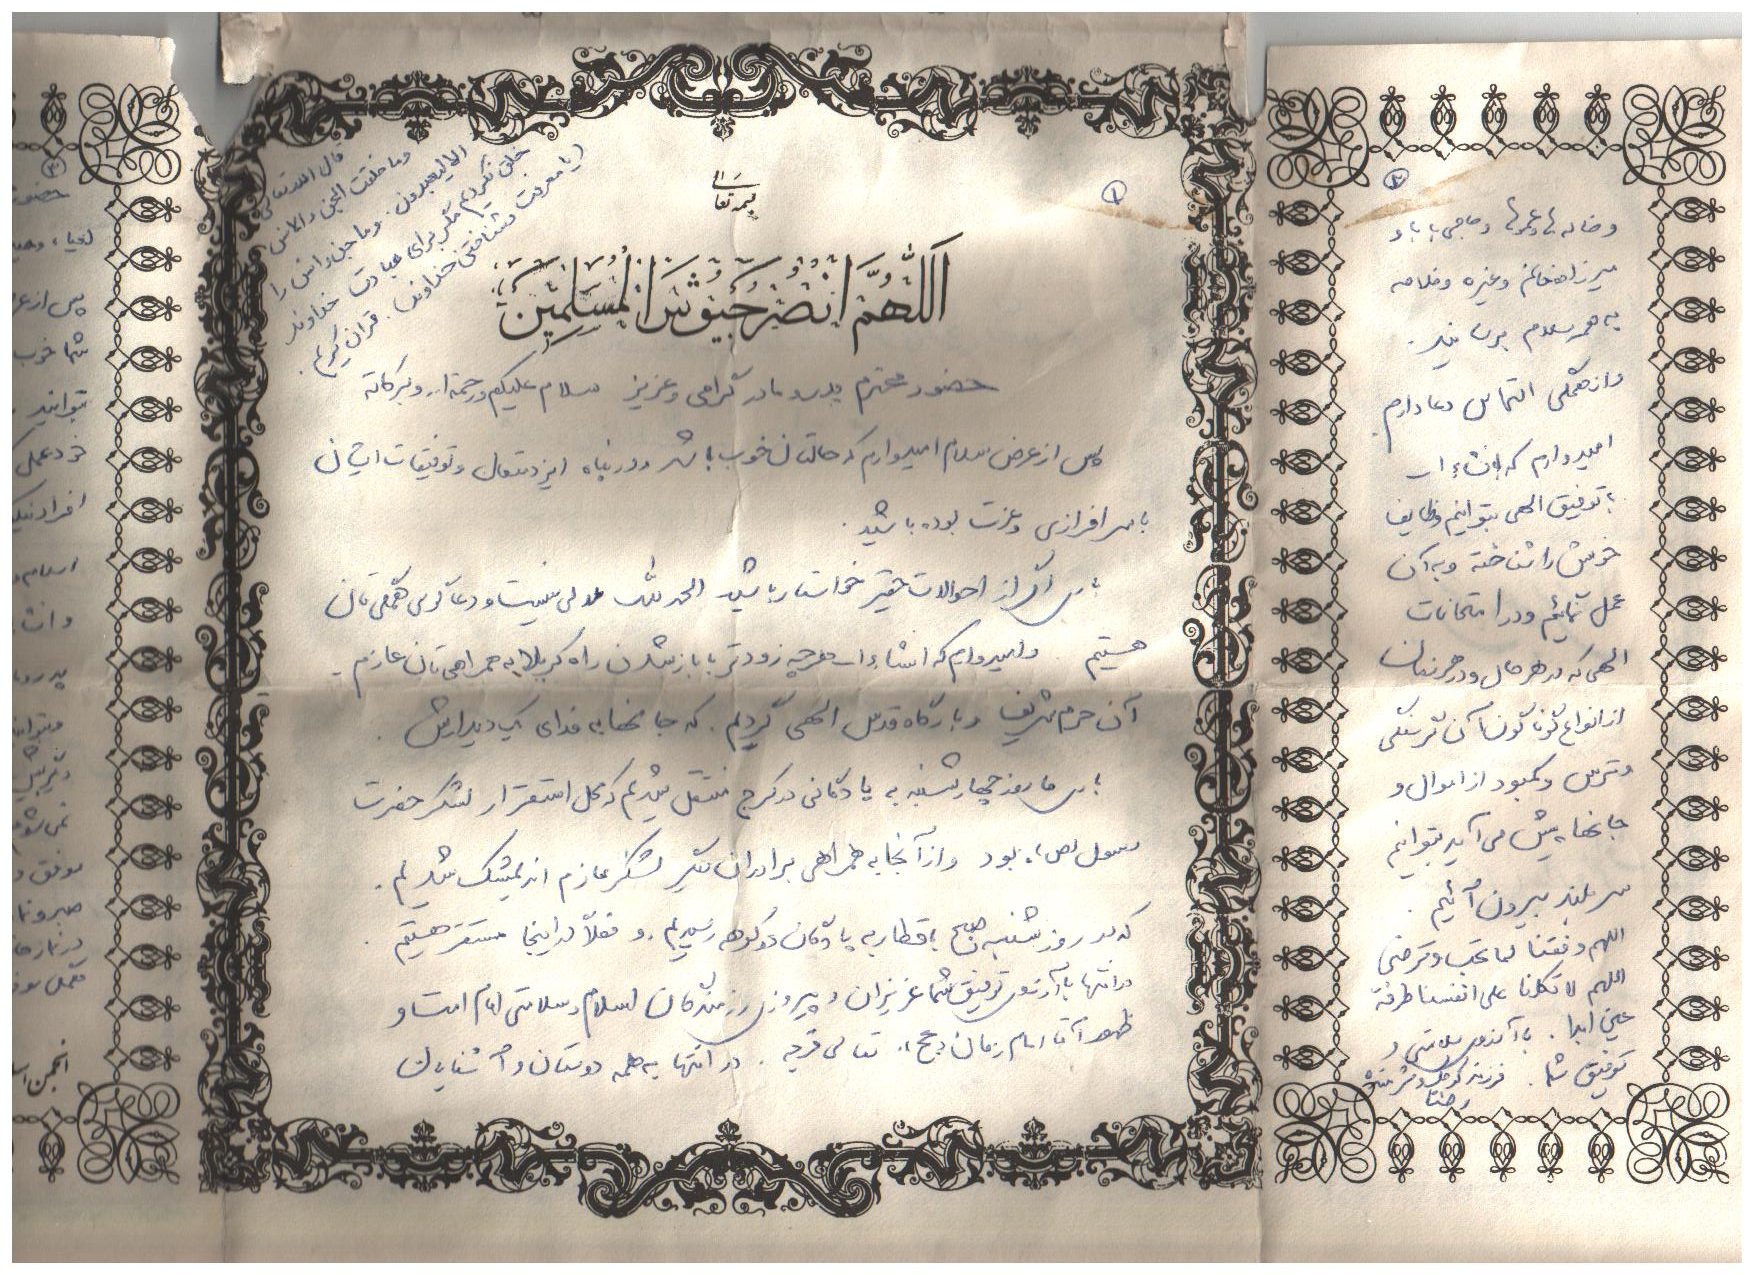 بسمه تعالی
①
قال الله تعالی
وما خلقت الجن والانس
الا لیعبدون. وما جن و انس را
خلق نکردیم مگر برای عبادت خداوند
(یا معرفت و شناختن خداوند). قرآن کریم.
اَللّهُمَّ انْصُرْ جُیُوشَ الْمُسْلِمینَ
حضور محترم پدر و مادر گرامی و عزیز سلام علیکم و رحمة ا... و برکاته
پس از عرض سلام امیدوارم که حالتان خوب باشد و در پناه ایزد متعال و توفیقات ایشان
با سرافرازی و عزت بوده باشید.
باری اگر از احوالات حقیر خواستار باشید الحمدلله ملالی نیست و دعاگوی همگی تان
هستیم. و امیدوارم که انشاءا... هرچه زودتر با باز شدن راه کربلا به همراهی تان عازم
آن حرم شریف و بارگاه قدس الهی گردیم. که جانهایمان فدای یک دیدارش.
باری ما روز چهارشنبه به پادگانی در کرج منتقل شدیم که محل استقرار لشکر حضرت
رسول (ص) بود و از آنجا به همراهی برادران دیگر لشکر عازم اندیمشک شدیم.
که در روز شنبه صبح با قطار به پادگان دوکوهه رسیدیم. و فعلاً در اینجا مستقر هستیم.
در انتها با آرزوی توفیق شما عزیزان و پیروزی رزمندگان اسلام و سلامتی امام امت و
ظهور آقا امام زمان (عج) تعالی فرجه. در انتها به همه دوستان و آشنایان
②
و خاله ها و عموها و حاجی بابا و
میرزا خانم و غیره و خلاصه
به همه سلام برسانید.
و از همگی التماس دعا دارم.
امیدوارم که انشاءا...
با توفیق الهی بتوانیم وظایف
خویش را شناخته و به آن
عمل نمائیم و در امتحانات
الهی که در هر حال و در هر زمان
از انواع گوناگون آن گرسنگی
و ترس و کمبود از اموال و
جانها پیش می آید بتوانیم
سربلند بیرون آئیم.
اللهم وفقنا لما تحب و ترضی
اللهم لا تکلنا علی انفسنا طرفة
عین ابدا. با آرزوی سلامتی و
توفیق شما. فرزند کوچک و شرمنده
رضا
③
حضور
پس از عرض
شما خوب
بتوانید
خود عمل
افراد نیک
اسلام
پدر و
نمی شود
موفق و
در نماز
انجمن اسـ